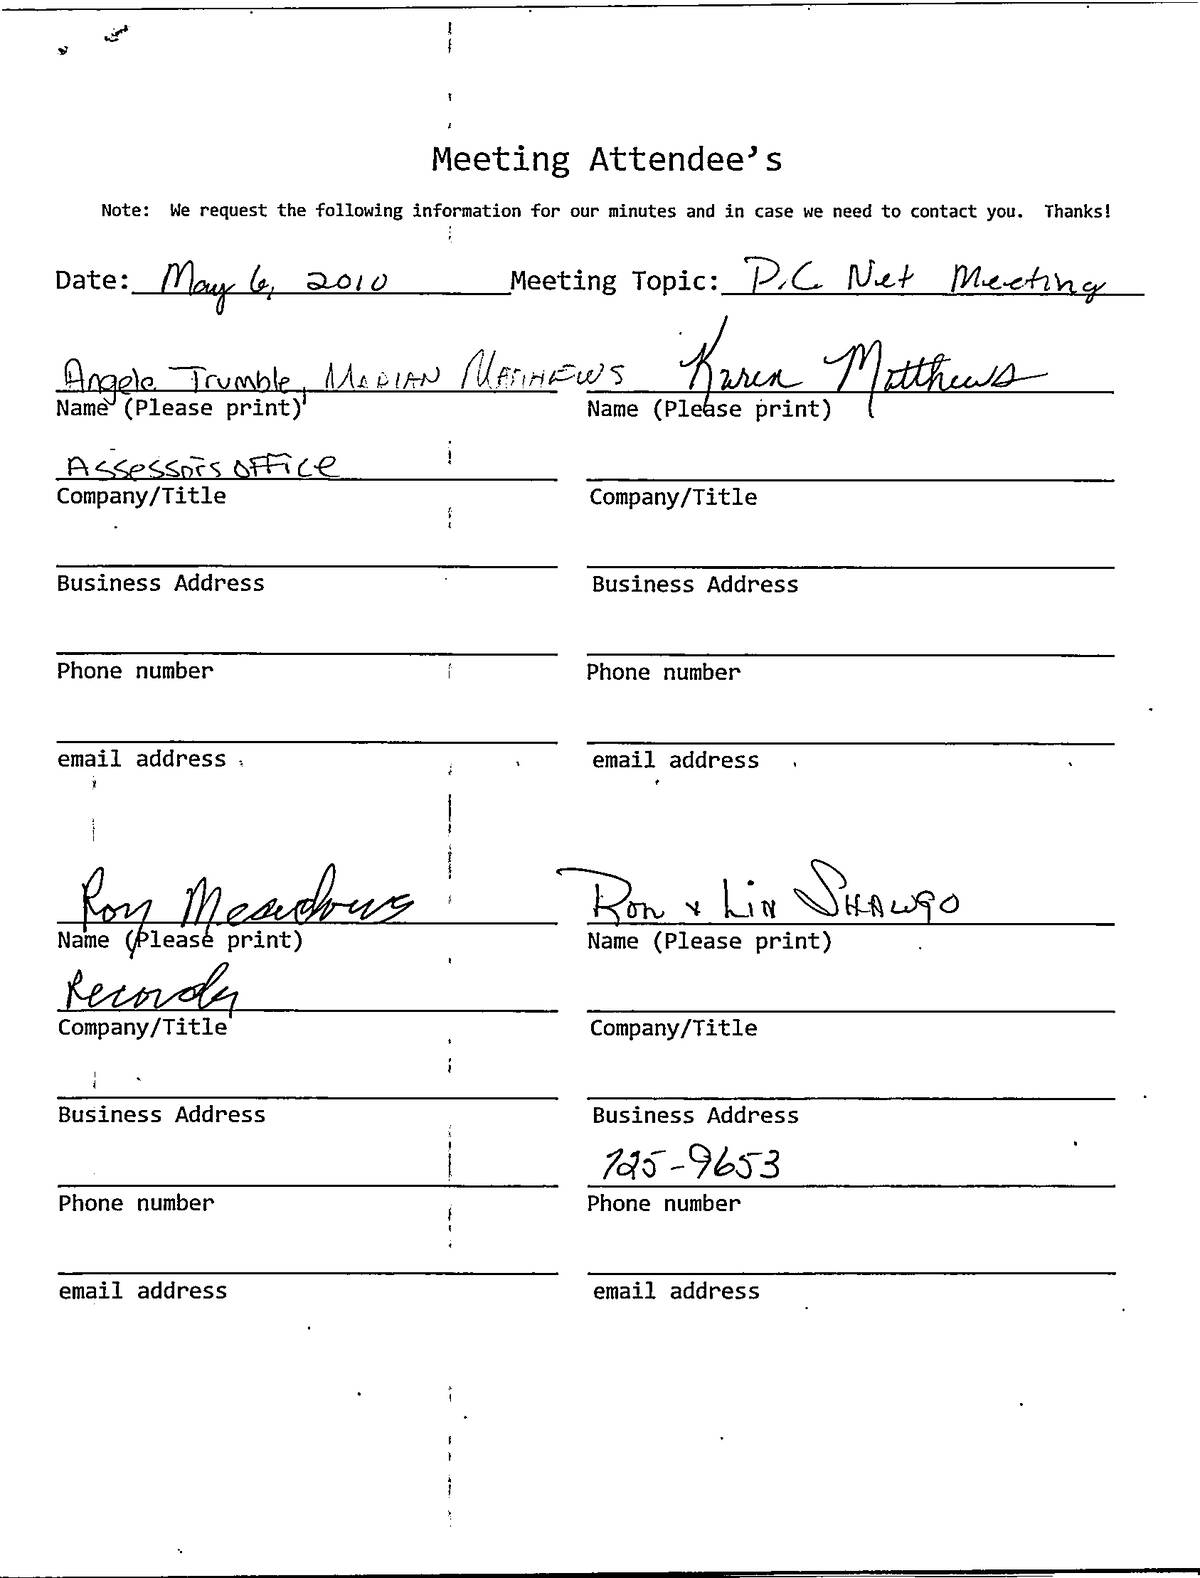 Meeting Attendee's
Note: We request the following information for our minutes and in case we need to contact you. Thanks!
Date: May 6, 2010 Meeting Topic: D.C Net Meeting
Angela Trumble, MARIAN MATTHEWS Karen Matthews
Name (Please print) Name (Please print)
Assessors office
Company/Title Company/Title
Business Address Business Address
Phone number Phone number
email address email address
Roy Meadows Ron & Lin SHAWGO
Name (Please print) Name (Please print)
Recorder
Company/Title Company/Title
Business Address Business Address
725-9653
Phone number Phone number
email address email address